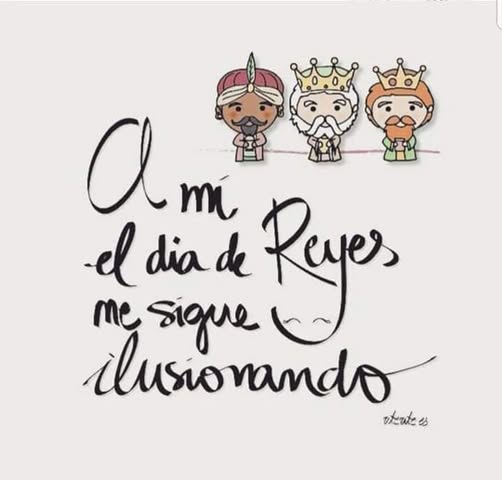 A mí
el dia de Reyes
me sigue
ilusionando